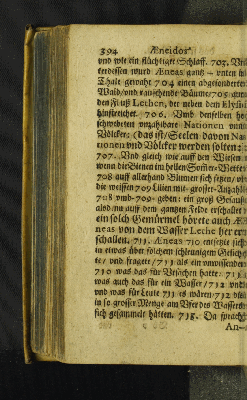 394 Æneidos
und wie ein flüchtiger Schlaff. 703. Un
terdessen wurd Æneas gantz = unten im
Thale gewahr 704 einen abgesonderten
Wald/und rauschende Bäume/705 und
den Fluß Lethen, der neben dem Elysio
hinstreichet. 706. Und demselben
schwebeten unzählbare Nationen und
Völcker: (das ist/Seelen davon Na-
tionen und Völcker werden solten:)
707. Und gleich wie auff den Wiesen
wenn die Bienen im hellen Sommer-Wetter
708 auff allerhand Blumen sich setzen/
die weissen 709 Lilien mit grosser Anzahl
708 umb=709=geben: ein groß Gesause
also nun auff dem gantzen Felde erschallet
ein solch Gemürmel hörete auch Æ
neas von dem Wasser Lethe her er
schallen. 711. Æneas 710 entsetzte sich
in etwas über solchem schleunigem Gesich
te/ und fragete/711 als ein unwissender
710 was das für Ursachen hatte. 711.
was auch das für ein Wasser/712 und
und was für Leute 711 es wären/712 die
in so grosser Menge am Ufer des Wassers
sich gesammelt hätten. 713. Da sprach
An-